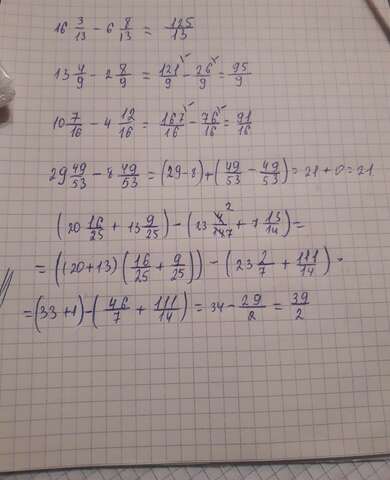 16 3/13 - 6 8/13 = 125/13
13 4/9 - 2 8/9 = 121/9 - 26/9 = 95/9
10 7/16 - 4 12/16 = 167/16 - 76/16 = 91/16
29 49/53 - 8 49/53 = (29-8)+(49/53 - 49/53) = 21 + 0 = 21
(20 16/25 + 13 9/25) - (23 4/147 2 + 7 13/14) =
= ((20+13)(16/25 + 9/25)) - (23 2/7 + 111/14) =
= (33+1)-(46/7 + 111/14) = 34 - 29/2 = 39/2